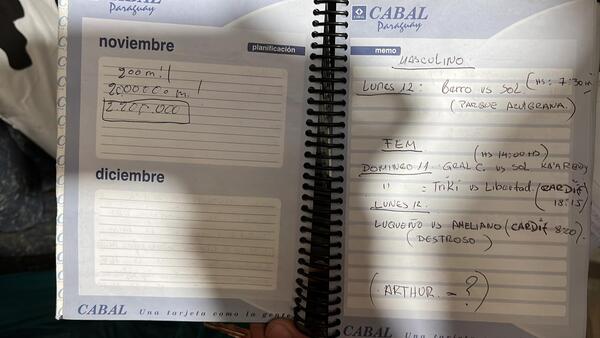 CABAL
Paraguay
noviembre
planificación
200 m!!
2000000 m!
2.200.000
diciembre
CABAL Una tarjeta como la gente
CABAL
Paraguay
memo
MASCULINO
LUNES 12: Berro vs SOL (HS: 7:30
(PARQUE AZULGRANA)
FEM
(HS 14:00 HS)
DOMINGO 11 GRAL C. vs SOL
" = TRIKI vs Libertad (CARDIF
18:15)
LUNES 12
LUQUEÑO vs AMELIANO (CARDIF 8:20).
(DESTROSO)
(ARTHUR = ?)
CABAL Una tarjeta como la